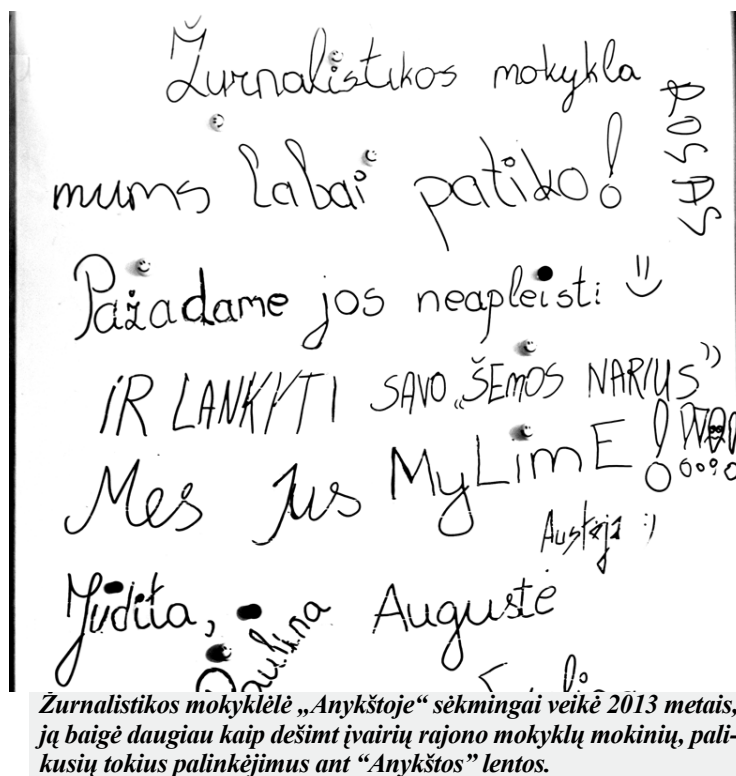 Žurnalistikos mokykla
mums labai patiko!
Pažadame jos neapleisti
IR LANKYTI SAVO „ŠEMOS NARIUS”
Mes Jus MyLimE!
Austėja :)
Judita, Paulina Augustė
Žurnalistikos mokyklėlė „Anykštoje“ sėkmingai veikė 2013 metais,
ją baigė daugiau kaip dešimt įvairių rajono mokyklų mokinių, pali-
kusių tokius palinkėjimus ant “Anykštos” lentos.